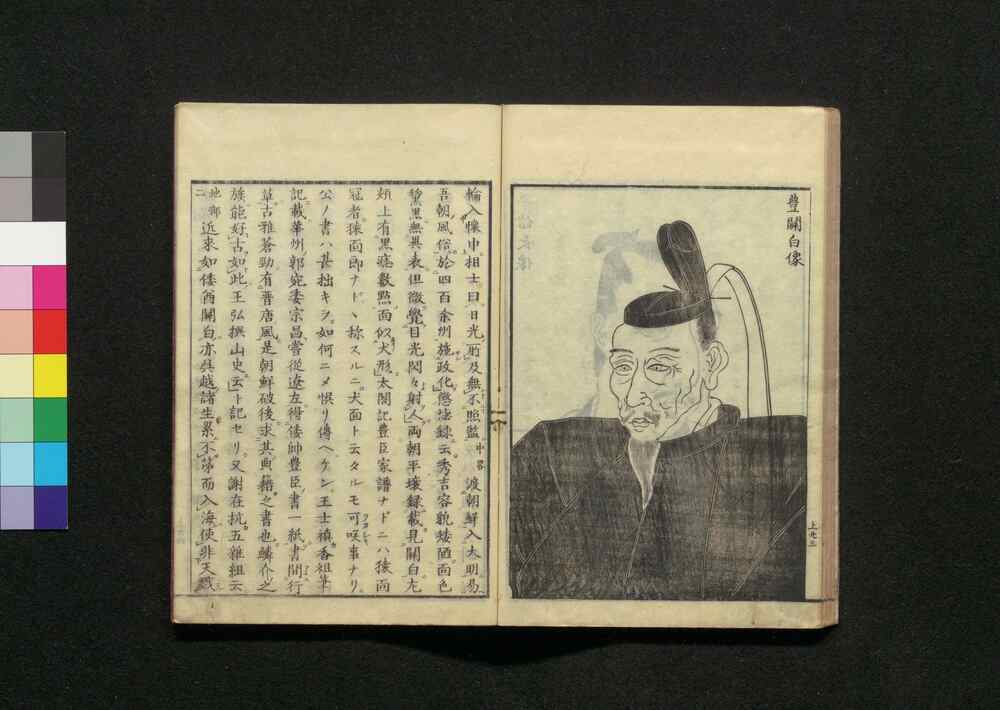 豊關白像
上廿三
輪入懷中相士曰日光所及無不照監中畧渡朝鮮入大明易
吾朝風俗於四百余州施政化懲毖録云秀吉容貌矮陋面色
黧黒無異表但微覺目光閃々射人両朝平壤録載見關白左
頬上有黒痣數點面似犬形太閤記豊臣家譜ナドニハ猿面
冠者猿面郎ナド丶称スルニ犬面ト云タルモ可咲事ナリ
公ノ書ハ甚拙キヲ如何ニメ悞リ傳ヘケン王士禎香祖筆
記載華州郭宛委宗昌嘗從遼左得倭帥豊臣書一紙書間行
草古雅蒼勁有晋唐風是朝鮮破後求其典籍之書也鱗介之
族能好古如此王弘撰山史云ト記セリ又謝在杭五雜組云
地部二近來如倭酋關白亦呉越諸生累不第而入海使非天戮